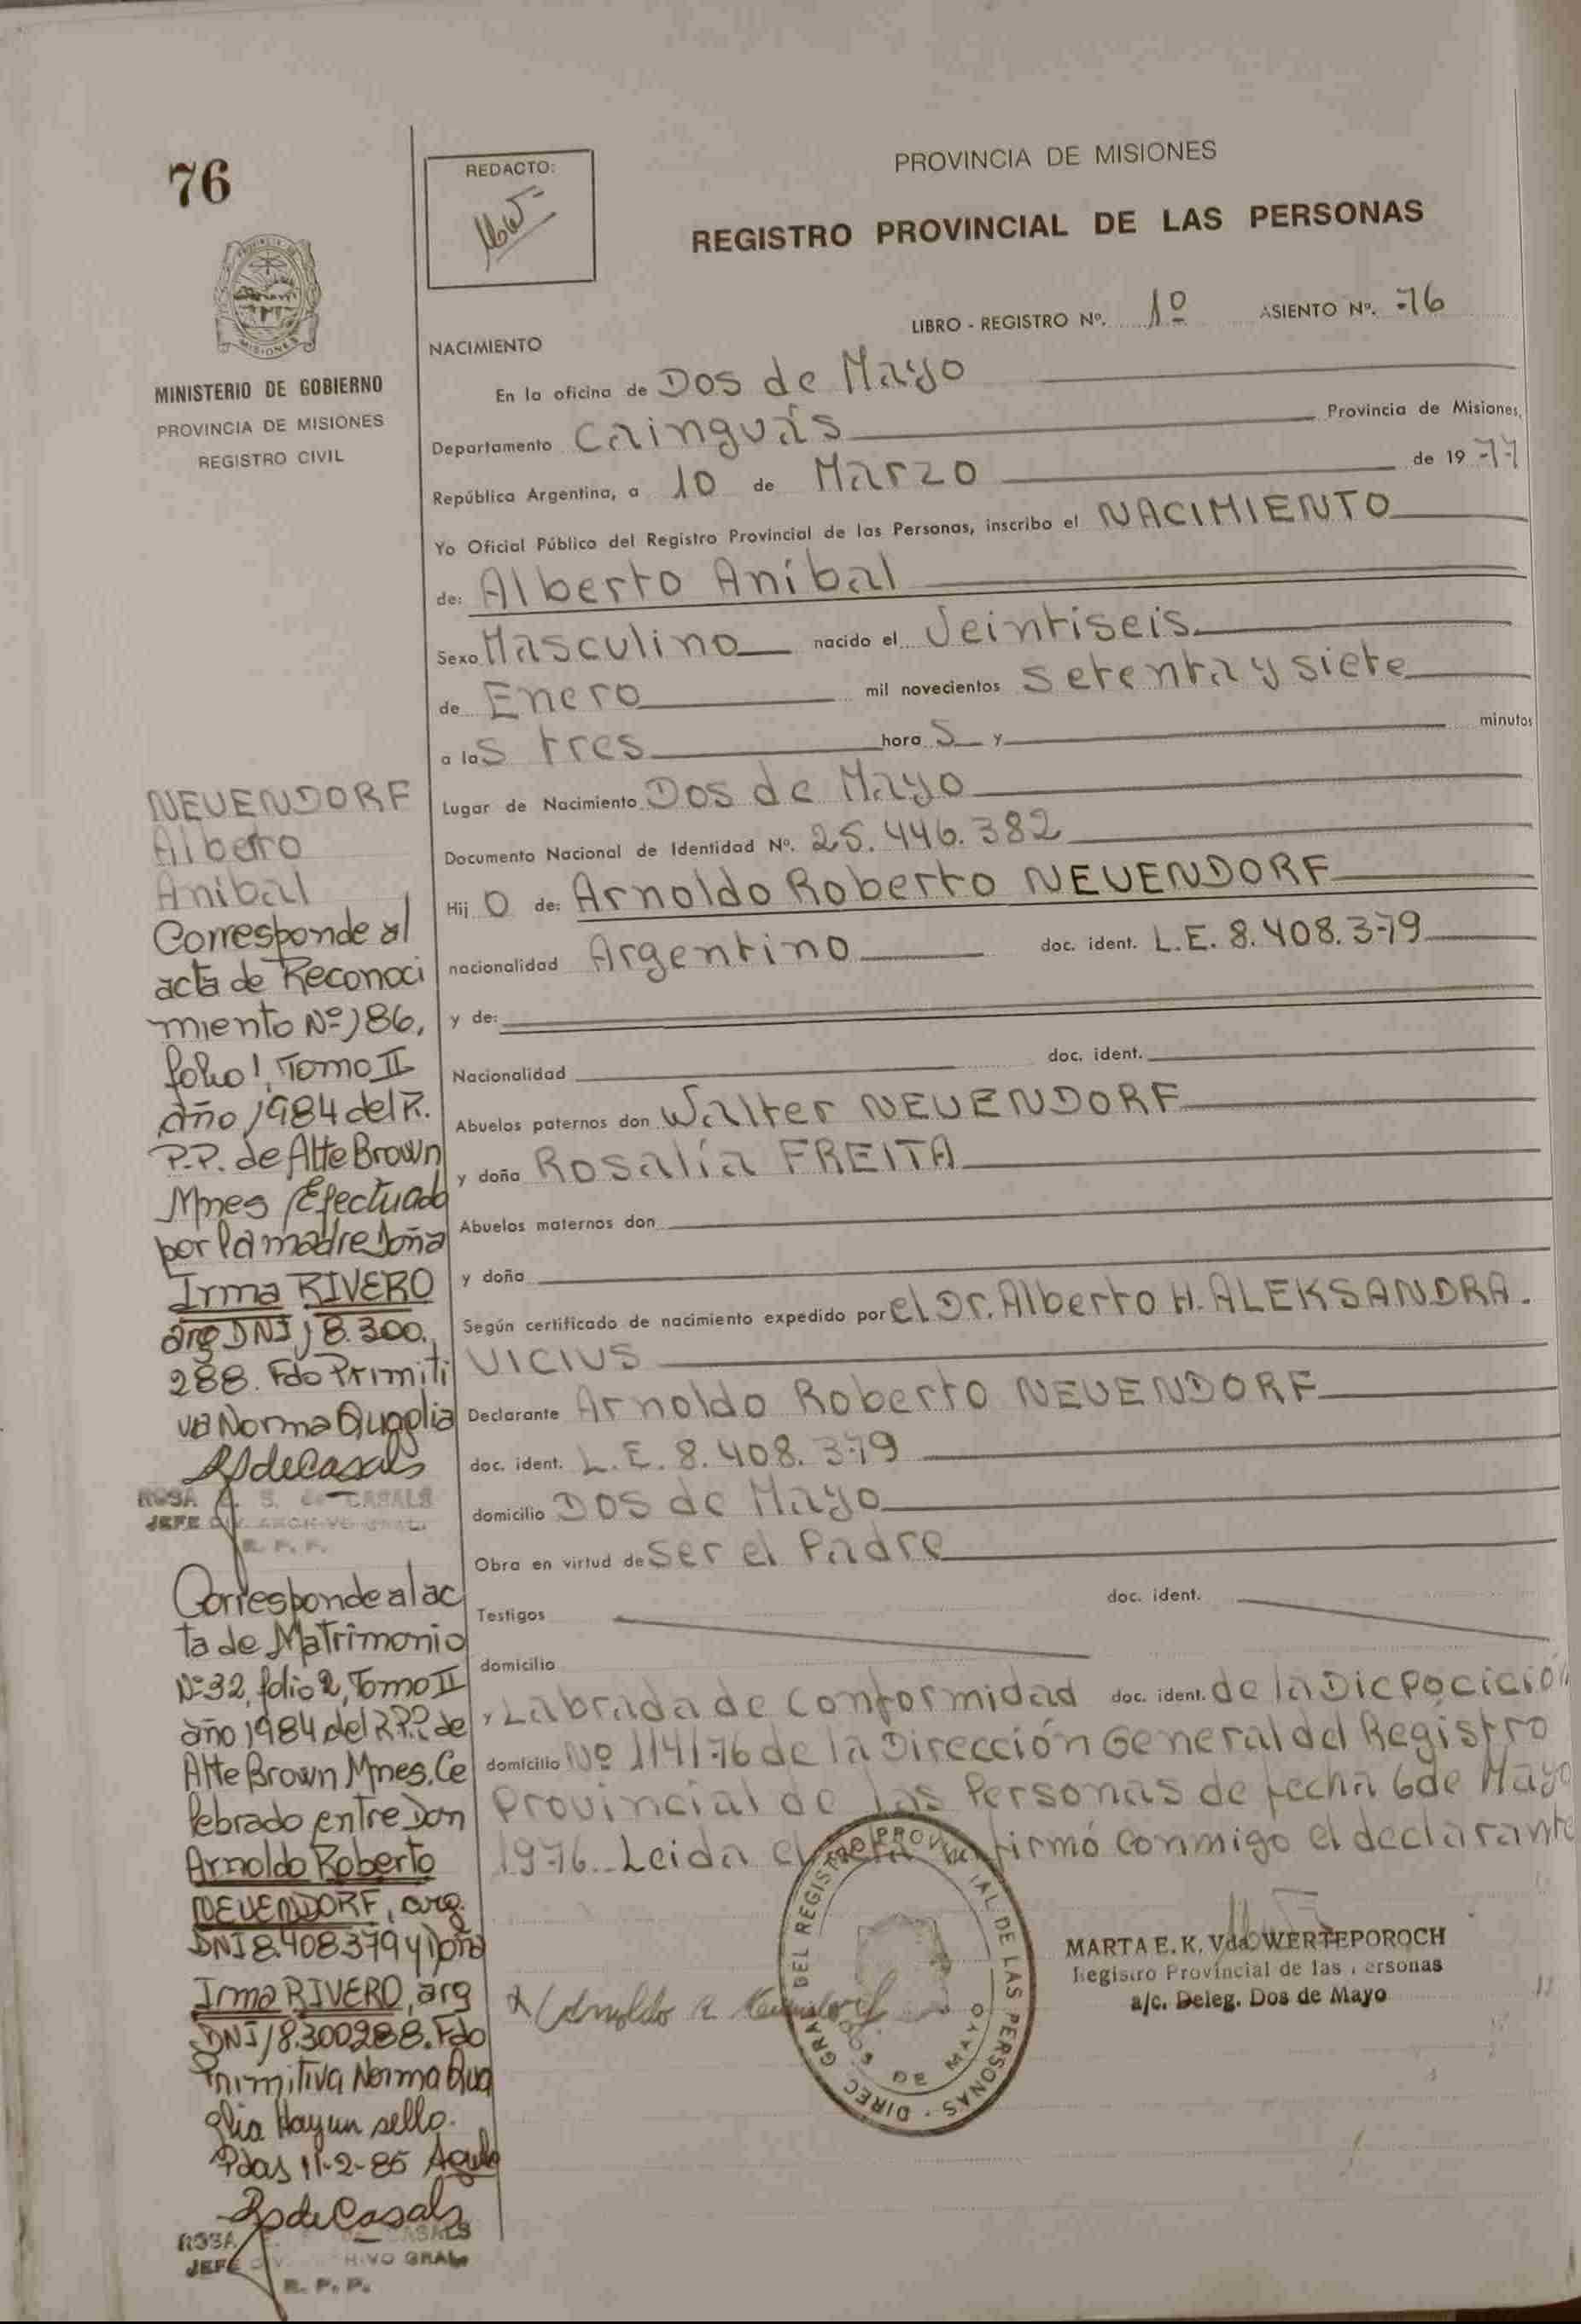 76
REDACTO:
PROVINCIA DE MISIONES
REGISTRO PROVINCIAL DE LAS PERSONAS
MISIONES
MINISTERIO DE GOBIERNO
PROVINCIA DE MISIONES
REGISTRO CIVIL
LIBRO - REGISTRO Nº. 1º ASIENTO Nº. 76
NACIMIENTO
En la oficina de Dos de Mayo
Departamento Cainguás Provincia de Misiones,
República Argentina, a 10 de Marzo de 1977
Yo Oficial Público del Registro Provincial de las Personas, inscribo el NACIMIENTO
de: Alberto Aníbal
Sexo Masculino nacido el Veintiseis
de Enero mil novecientos setenta y siete
a las tres hora s y minutos
Lugar de Nacimiento Dos de Mayo
Documento Nacional de Identidad Nº. 25.446.382
Hij o de: Arnoldo Roberto NEUENDORF
nacionalidad Argentino doc. ident. L.E. 8.408.379
y de:
Nacionalidad doc. ident.
Abuelos paternos don Walter NEUENDORF
y doña Rosalía FREITA
Abuelos maternos don
y doña
Según certificado de nacimiento expedido por el Dr. Alberto H. ALEKSANDRA.
VICIUS
Declarante Arnoldo Roberto NEUENDORF
doc. ident. L.E. 8.408.379
domicilio Dos de Mayo
Obra en virtud de ser el Padre
Testigos doc. ident.
domicilio
Labrada de conformidad doc. ident. de la Dicpocición
domicilio Nº 114/76 de la Dirección General del Registro
Provincial de las Personas de fecha 6 de Mayo
1976. Leida el acta firmó conmigo el declarante
NEUENDORF
Alberto
Anibal
Corresponde al
acta de Reconoci
miento Nº 186,
folio 1, Tomo II
año 1984 del R.
P.P. de Alte Brown
Mnes Efectuado
por la madre Doña
Irma RIVERO
arg DNI 18.300.
288. Fdo Primiti
va Norma Quaglia
RSdeCasals
ROSA E. S. de CASALS
JEFE DIV. ARCHIVO GRAL.
R. P. P.
Corresponde al ac
ta de Matrimonio
Nº 32, folio 2, Tomo II
año 1984 del R.P.P. de
Alte Brown Mnes. Ce
lebrado entre Don
Arnoldo Roberto
NEUENDORF, arg.
DNI 8.408.379 y Doña
Irma RIVERO, arg
DNI 18.300288. Fdo
Primitiva Norma Qua
glia Hay un sello.
Pdas 11-2-85
RSdeCasals
ROSA CASALS
JEFE DIV ARCHIVO GRAL.
R. P. P.
DIREC. GRAL DEL REGISTRO PROVINCIAL DE LAS PERSONAS
DOS DE MAYO
MARTA E. K. Vda. WERTEPOROCH
Registro Provincial de las Personas
a/c. Deleg. Dos de Mayo